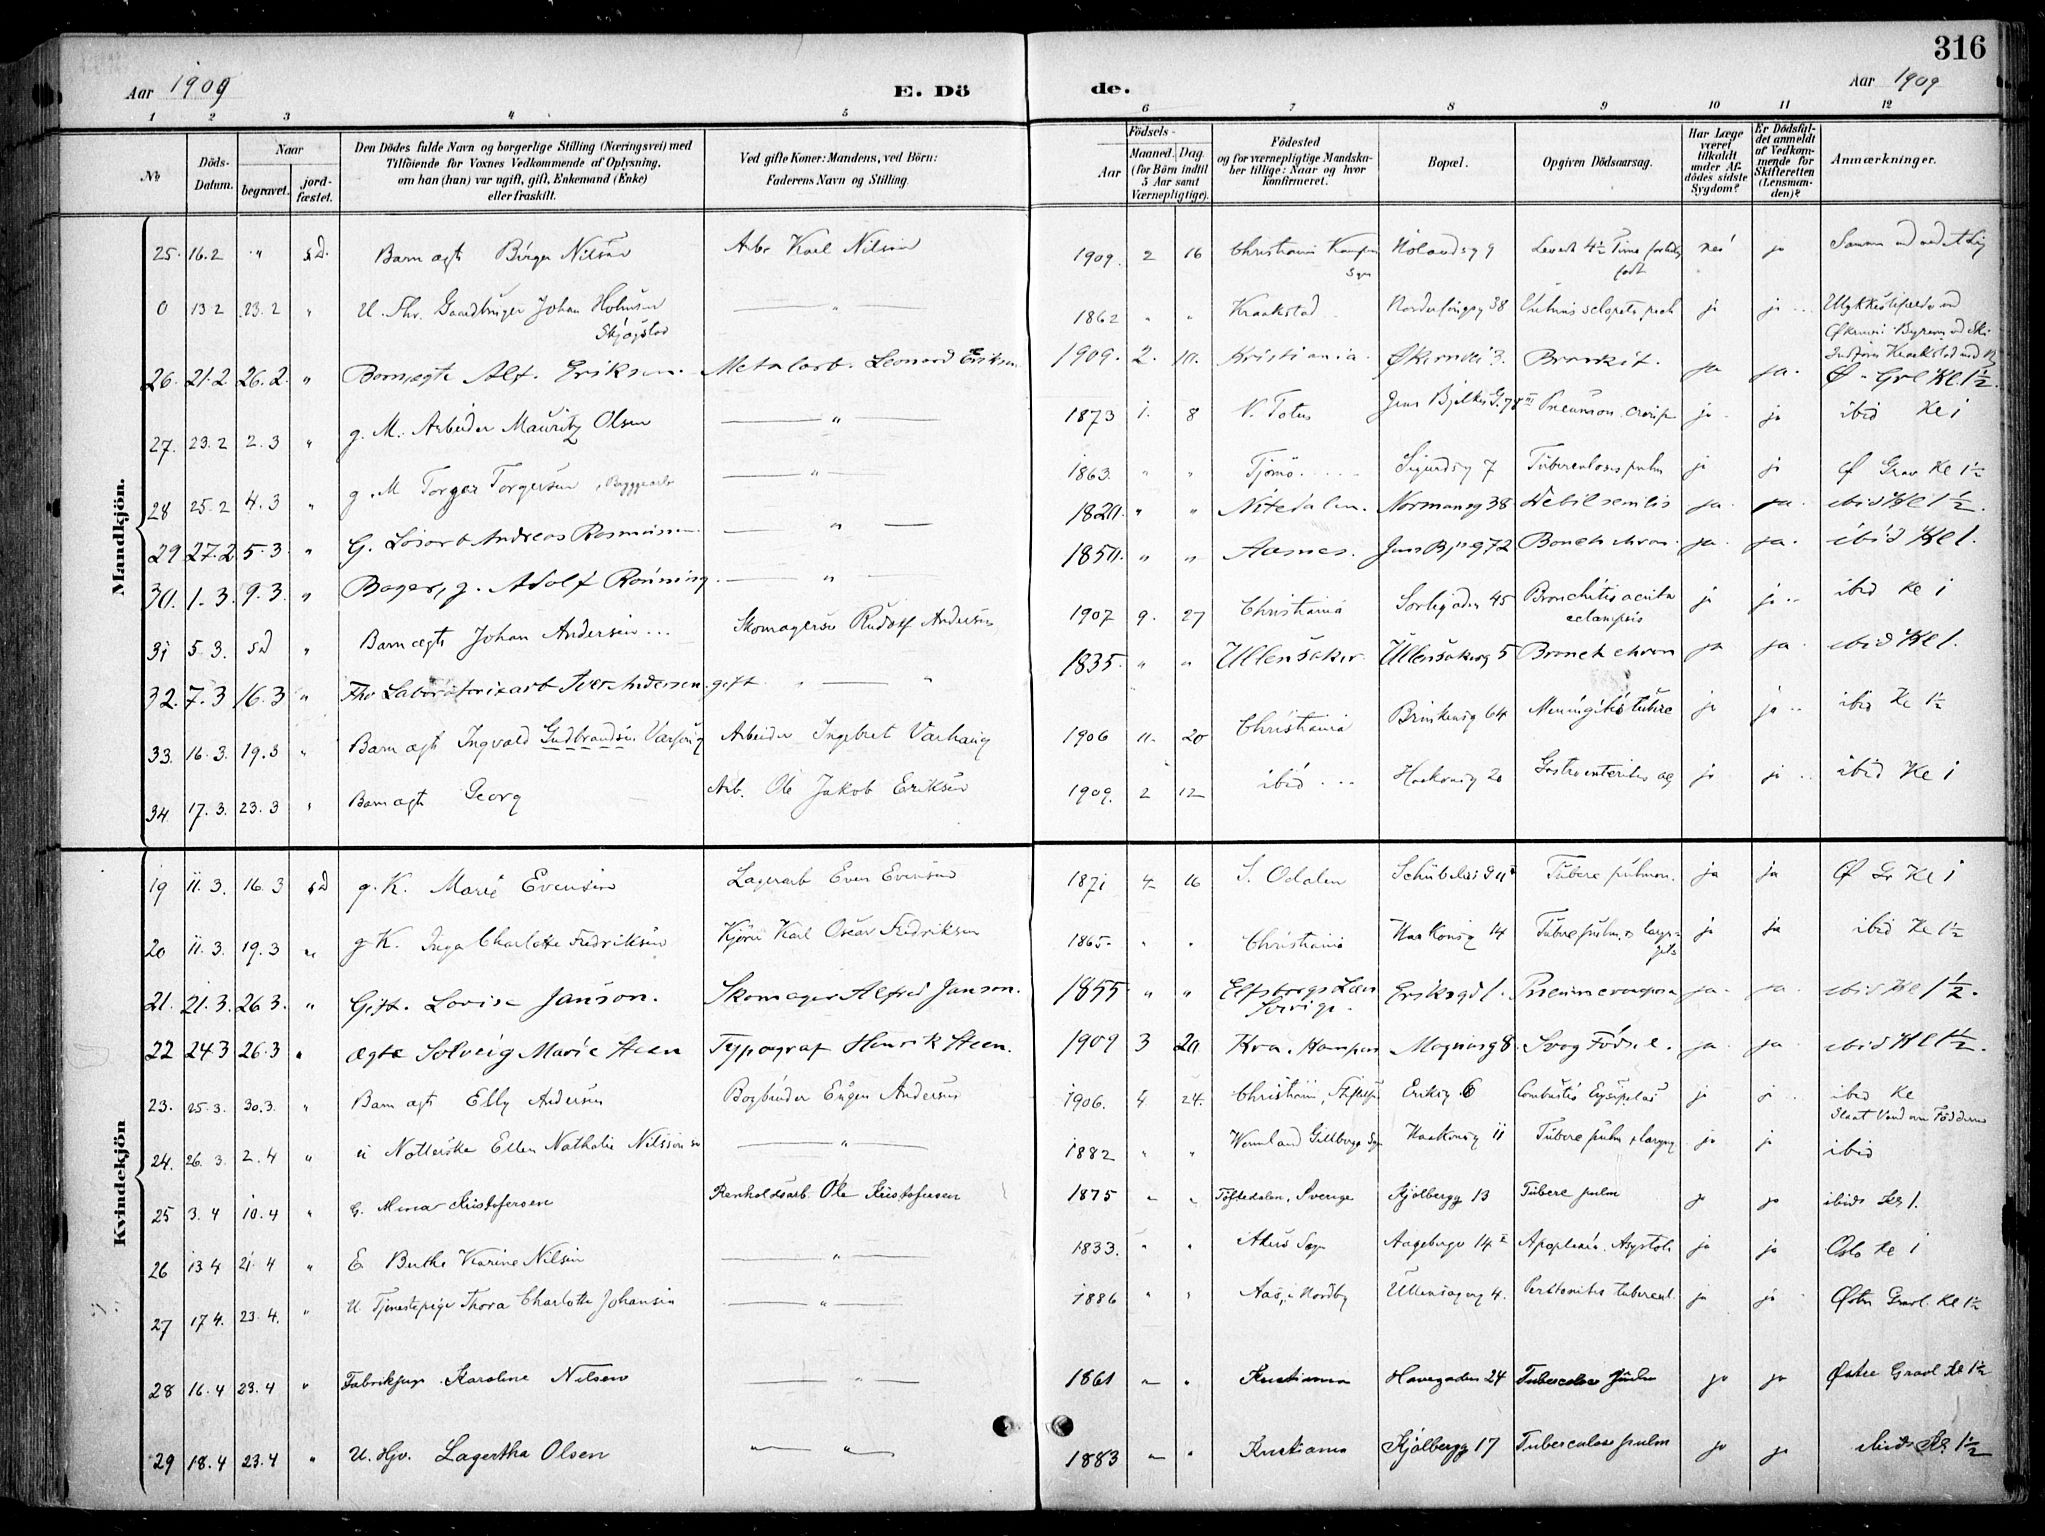 316
Aar 1909 E. Dö de. Aar 1909
1 2 3 4 5 6 7 8 9 10 11 12
No
Döds-Datum.
Naar
begravet.
jordfæstet.
Den Dödes fulde Navn og borgerlige Stilling (Næringsvei) med
Tilföiende for Voxnes Vedkommende af Oplysning,
om han (hun) var ugift, gift, Enkemand (Enke)
eller fraskilt.
Ved gifte Koner: Mandens, ved Börn:
Faderens Navn og Stilling.
Födsels-
Aar
Maaned. Dag
(for Börn indtil
5 Aar samt
Værnepligtige).
Födested
og for værnepligtige Mandska-
ber tillige: Naar og hvor
konfirmeret.
Bopæl.
Opgiven Dödsaarsag.
Har Læge
været
tilkaldt
under Af-
dödes sidste
Sygdom?
Er Dödsfal-
det anmeldt
af Vedkom-
mende for
Skifteretten
(Lensman-
den)?
Anmærkninger.
Mandkjön.
25. 16.2 " s.D. Barn ægte Birger Nilsen Arb. Karl Nilsen 1909. 2 16 Christiania Kampen Sgn Hölandsg 9 Levede 4½ Time født nei ja
0 13 2 23.2 " U. Fhv. Gaardbruger Johan Holmsen Skjøgstad — " — 1862 " " Kraakstad Nordenfongg 38 Vulnus sclopet. pect ja ja Ulykkestilfælde
26. 21.2 26.2. " Barn, ægte Alf. Eriksen. Metalarb. Leonard Eriksen 1909. 2. 10. Kristiania. Økernvei 3. Bronkit. ja ja. Ø. Grl Kl. 1½.
27. 23.2 2.3 " g. M. Arbeider Mauritz Olsen — " — 1873 1. 8 V. Toten Jens Bjelkes G. 74 III Pneumon. croup ja ja ibid Kl 1
28 25.2 4.3 " g. M Torger Torgersen, Byggearb — " — 1863. " " Tjømø. Sigurdsg 7 Tuberculosis pulm ja ja Ø Grav Kl 1½
29 27.2 5.3 " G. Losarb Andreas Rasmussen — " — 1820. " " Nitedalen. Normansg 38 Debil senilis ja. ja. ibid Kl 1½.
30. 1.3. 9.3. " Bager, g. Adolf Rönning. — " — 1850. " " Aasnes. Jens Bj. g 72 Bonch chron. ja. ja. ibid Kl 1.
31 5.3. sd " Barn ægte Johan Andersen... Skomagersv Rudolf Andersen 1907 9. 27 Christiania Sorligaden 45 Bronchitis acuta eclampsia ja ja ibid Kl 1
32. 7.3 16.3 " Fhv Laboratoriearb Iver Andersen. gift. — " 1835. " " Ullensaker. Ullensakerg 5 Bronch chron ja ja. ibid Kl 1.
33. 16.3. 19.3 " Barn ægte Ingvald Gudbrandsen Varhaug Arbeider Ingebret Varhaug 1906 11. 20 Christiania Brinkensg 64 Meningitis tuberc ja ja ibid Kl 1½
34. 17.3. 23.3 " Barn ægte Georg Arb. Ole Jakob Eriksen 1909. 2 12 ibid... Haakonsg 20 Gastroenteritis ac ja ja ibid Kl 1
Kvindekjön
19 11.3. 16.3 s.D g. K. Marie Evensen Lagerarb Even Evensen 1871 4 16 S. Odalen Schübelers g 11 Tuberc pulmon. ja ja Ø Gr Kl 1
20 11.3. 19.3 " g. K. Inga Charlotte Fredriksen Kjører Karl Oscar Fredriksen 1865. " " Christiania Haakonsg 14 Tuberc pulm. & laryngis ja ja ibid Kl 1½
21. 21.3. 26.3. " Gift. Lovise Janson. Skomager Alfred Janson. 1855 " " Elfsborgs Læn Sverige. Eriksgd 1. Pneumcroupøsa ja. ja. ibid Kl 1½.
22 24.3 26.3 " ægte Solveig Marie Steen Typograf Henrik Steen. 1909 3 20 Kra. Kampen Magnusg 8. Svag Födsel. ja. ja. ibid Kl 1½.
23. 25.3. 30.3. " Barn ægte Elly Andersen Bogbinder Eugen Andersen 1906. 4 24. Christiania, Eriksg. 6 Combustio Erysipelas ja ja ibid Kl
24. 26.3. 2.4 " u Ellen Nathalie Nilsson — " — 1882 " " Wermland Gillberga Sgn Haakonsg 11 Tuberc pulm & laryng ja ja ibid
25 3.4 10.4 " G. Mina Kristofersen Renholdsarb. Ole Kristofersen 1875 " " Töftedalen, Sverige Kjølbergg 13 Tuberc pulm ja ja ibid Kl 1.
26 13.4 21.4 " E Berthe Karine Nilsen — " — 1833. " " Akers Sogn Aagebergv 14 I Apoplexia. Asystoli ja ja Oslo Kl 1
27 17.4. 23.4. " U. Tjenestepige Thora Charlotte Johansen — " — 1886 " " Aas, i Nordby Ullensagerg 4. Peritonitis tubercul. ja ja Østre Gravl. Kl 1½
28 16.4 23.4 " Fabrikpige. Karoline Nilsen — " — 1861 " " Kristiania Havegaden 24 Tuberculose pulm ja ja Østre Gravl Kl 1½
29 18.4 23.4 " U. Hjv. Lagertha Olsen — " — 1883 " " Kristiania Kjølbergg 17 Tuberculose pulm ja ja ibids Kl. 1½